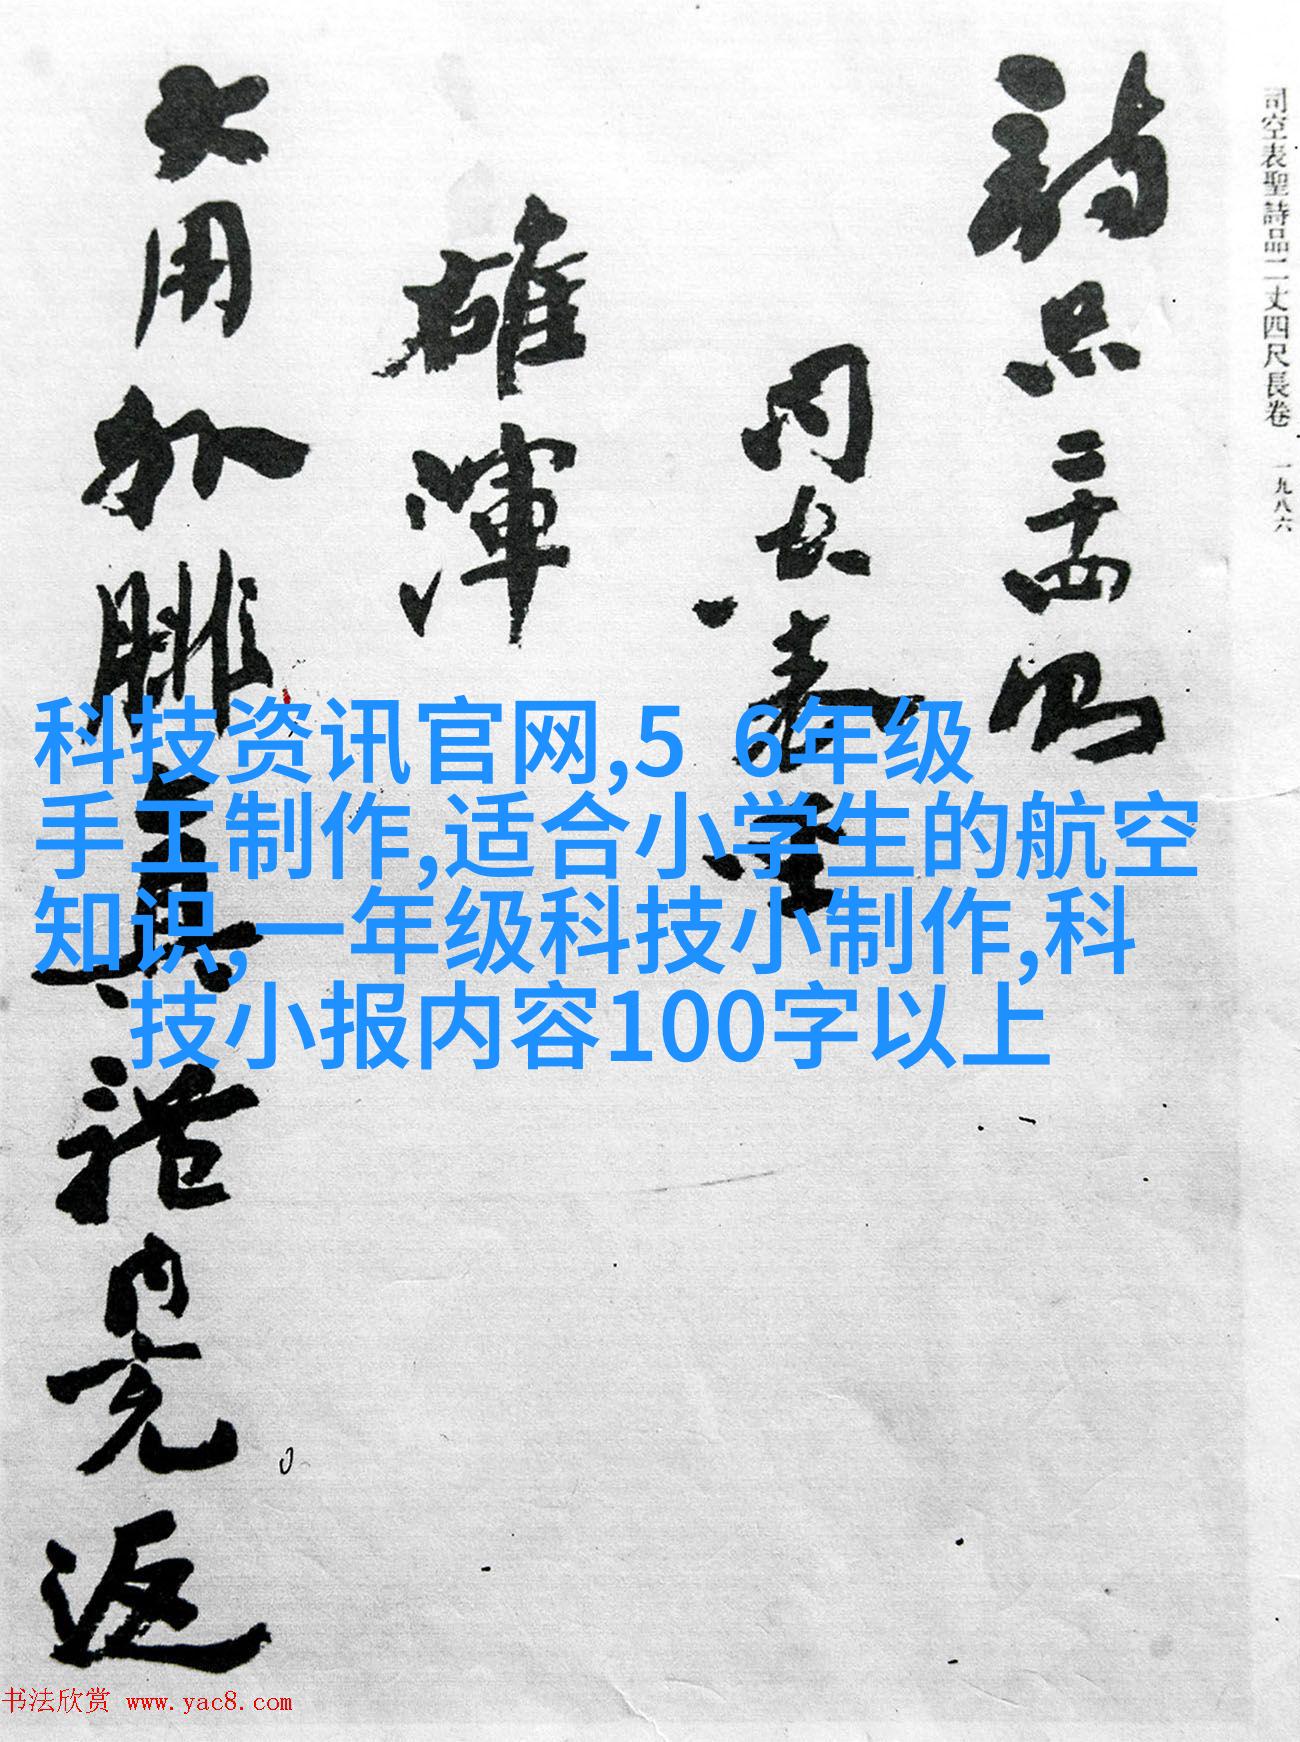 司空表聖詩品二丈四尺長卷 一九八六
詩品二十四則
司空表聖
雄渾
大用外腓真體内充返
科技资讯官网,5 6年级
手工制作,适合小学生的航空
知识,一年级科技小制作,科
技小报内容100字以上
书法欣赏 www.yac8.com